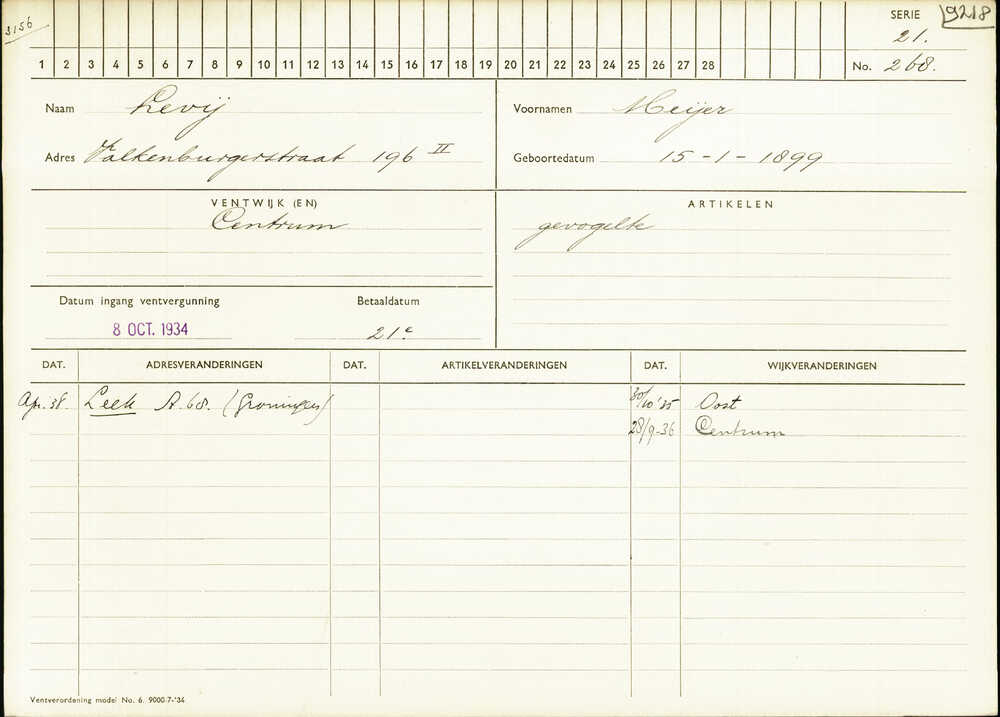 3156
SERIE 9218
21.
1 2 3 4 5 6 7 8 9 10 11 12 13 14 15 16 17 18 19 20 21 22 23 24 25 26 27 28 No. 268.
Naam Levij Voornamen Meijer
Adres Valkenburgerstraat 196 II Geboortedatum 15-1-1899
VENTWIJK (EN) ARTIKELEN
Centrum gevogelte
Datum ingang ventvergunning Betaaldatum
8 OCT. 1934 21e
DAT. ADRESVERANDERINGEN DAT. ARTIKELVERANDERINGEN DAT. WIJKVERANDERINGEN
Apr. 38. Leek A. 68. (Groningen) 30/10 '35 Oost
28/9-36 Centrum
Ventverordening model No. 6. 9000-7-'34